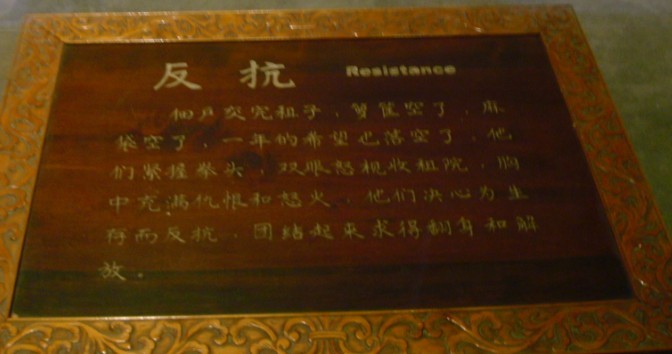 反抗 Resistance
佃户交完租子，箩筐空了，麻
袋空了，一年的希望也落空了，他
们紧握拳头，双眼怒视收租院，胸
中充满仇恨和怒火，他们决心为生
存而反抗，团结起来求得翻身和解
放。